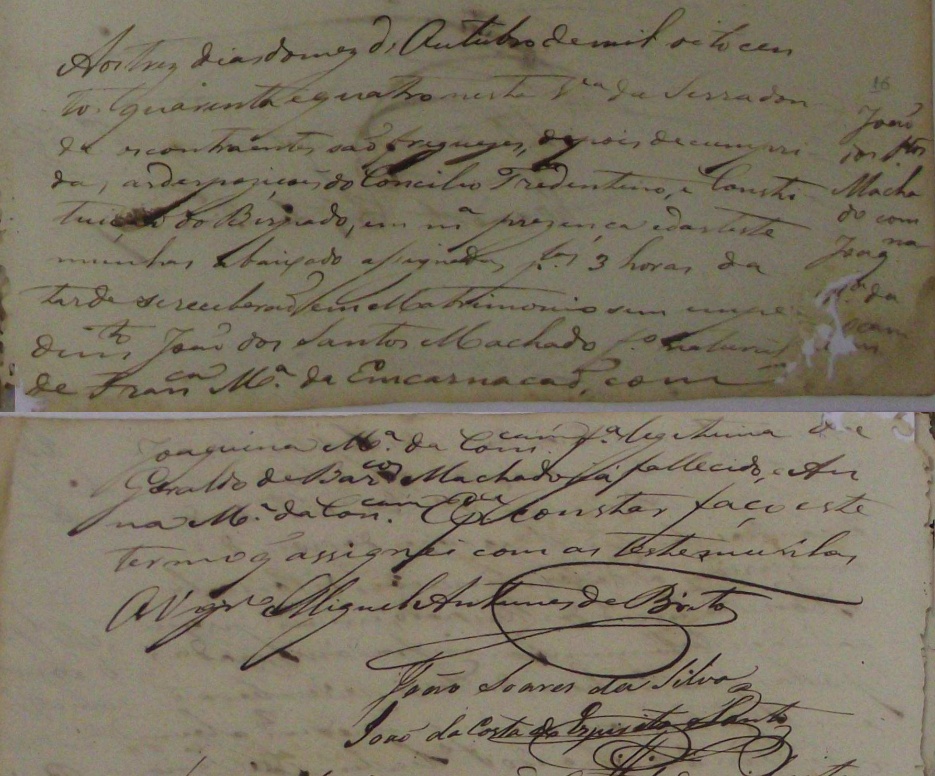 Aos trez dias do mez d'Outubro de mil oito cen
tos quarenta e quatro neste Va da Serra don
de os contraentes são freguezes, depois de cumpri
das, as desposiçoens do Concilio Tredentino, e Consti
tuição do Bispado, em ma presença e das teste
munhas abaixado assignadas pas 3 horas da
tarde se receberão em Matrimonio sem empe
dimto João dos Santos Machado fo natural
de Franca Ma da Emcarnacaõ, com
16
João
dos Stos
Macha
do com
Joaqna
Ma da
Joaquina Ma da Concam fa legitima de
Geraldo de Barcos Machado já fallecido, e An
na Ma da Concam Epa constar faço este
termo q assignei com as testemunhas
O Vigro Miguel Antunes de Brito
João Soares da Silva
João da Costa do Espirito Santo